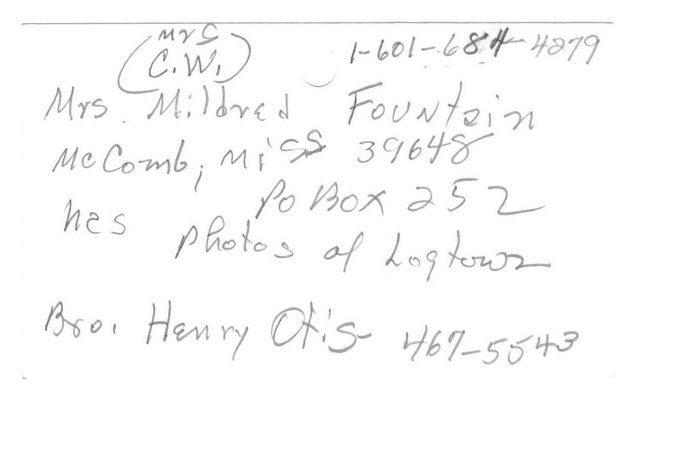 Mrs
(C.W.) 1-601-684-4279
Mrs. Mildred Fountain
McComb, Miss 39648
Po Box 252
has photos of Logtown
Bro. Henry Otis 467-5543